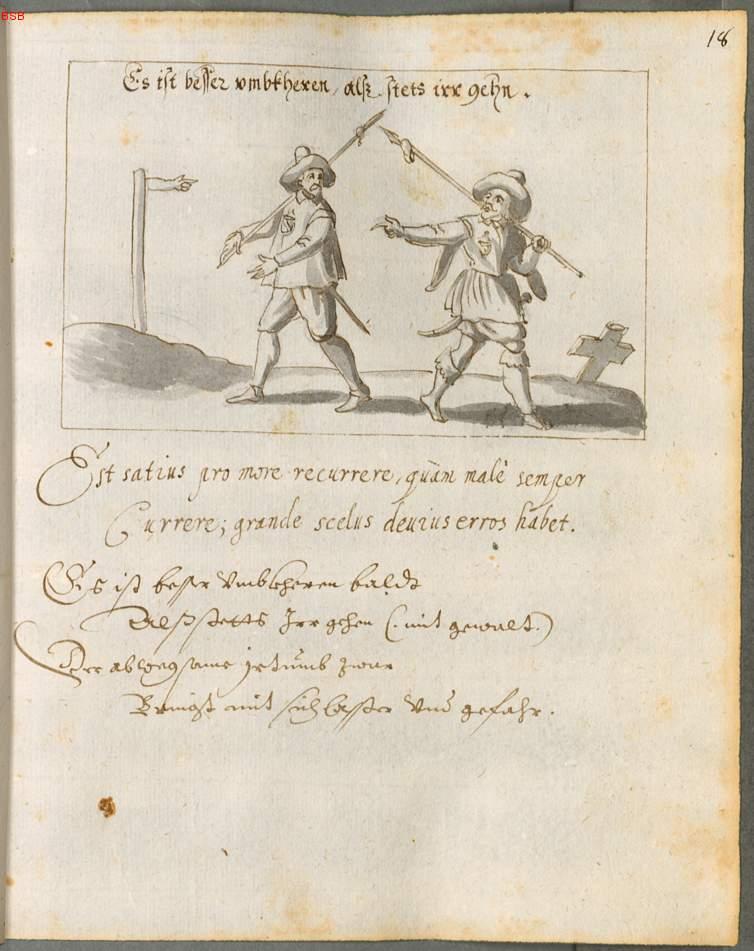 BSB
18
Es ist besser vmbkheren, alß stets irr gehn.
Est satius pro more recurrere, quàm malè semper
Currere; grande scelus deuius erros habet.
Es ist besser Vmbkheren baldt
Alß stetts Irr gehen (. mit gewalt.)
Der abwegsame jrtumb zwar
Bringt mit sich laster Vnd gefahr.